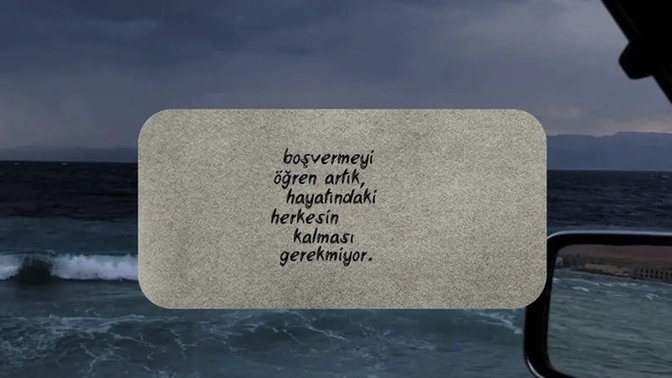 boşvermeyi
öğren artık,
hayatındaki
herkesin
kalması
gerekmiyor.